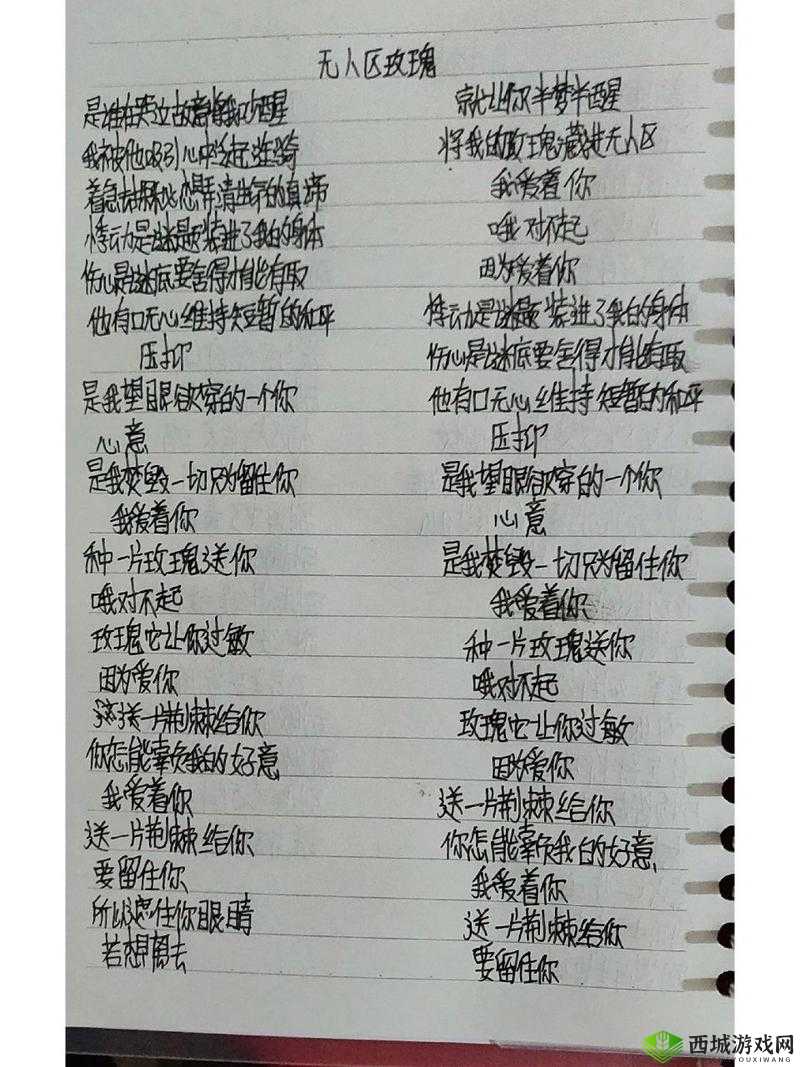 无人区玫瑰
是谁在旁边故意将我吵醒
我被他吸引心中泛起涟漪
着急去探秘想弄清生命的真谛
悸动是谜题装进了我的身体
伤心是谜底要舍得才能存取
他有口无心维持短暂的和平
压抑
是我望眼欲穿的一个你
心意
是我焚毁一切只为留住你
我爱着你
种一片玫瑰送你
哦对不起
玫瑰它让你过敏
因为爱你
送一片荆棘给你
你怎能辜负我的好意
我爱着你
送一片荆棘给你
要留住你
所以遮住你眼睛
若想离去
就让你半梦半醒
将我的玫瑰藏进无人区
我爱着你
哦对不起
因为爱着你
悸动是谜题装进了我的身体
伤心是谜底要舍得才能存取
他有口无心维持短暂的和平
压抑
是我望眼欲穿的一个你
心意
是我焚毁一切只为留住你
我爱着你
种一片玫瑰送你
哦对不起
玫瑰它让你过敏
因为爱你
送一片荆棘给你
你怎能辜负我的好意
我爱着你
送一片荆棘给你
要留住你
西城游戏网